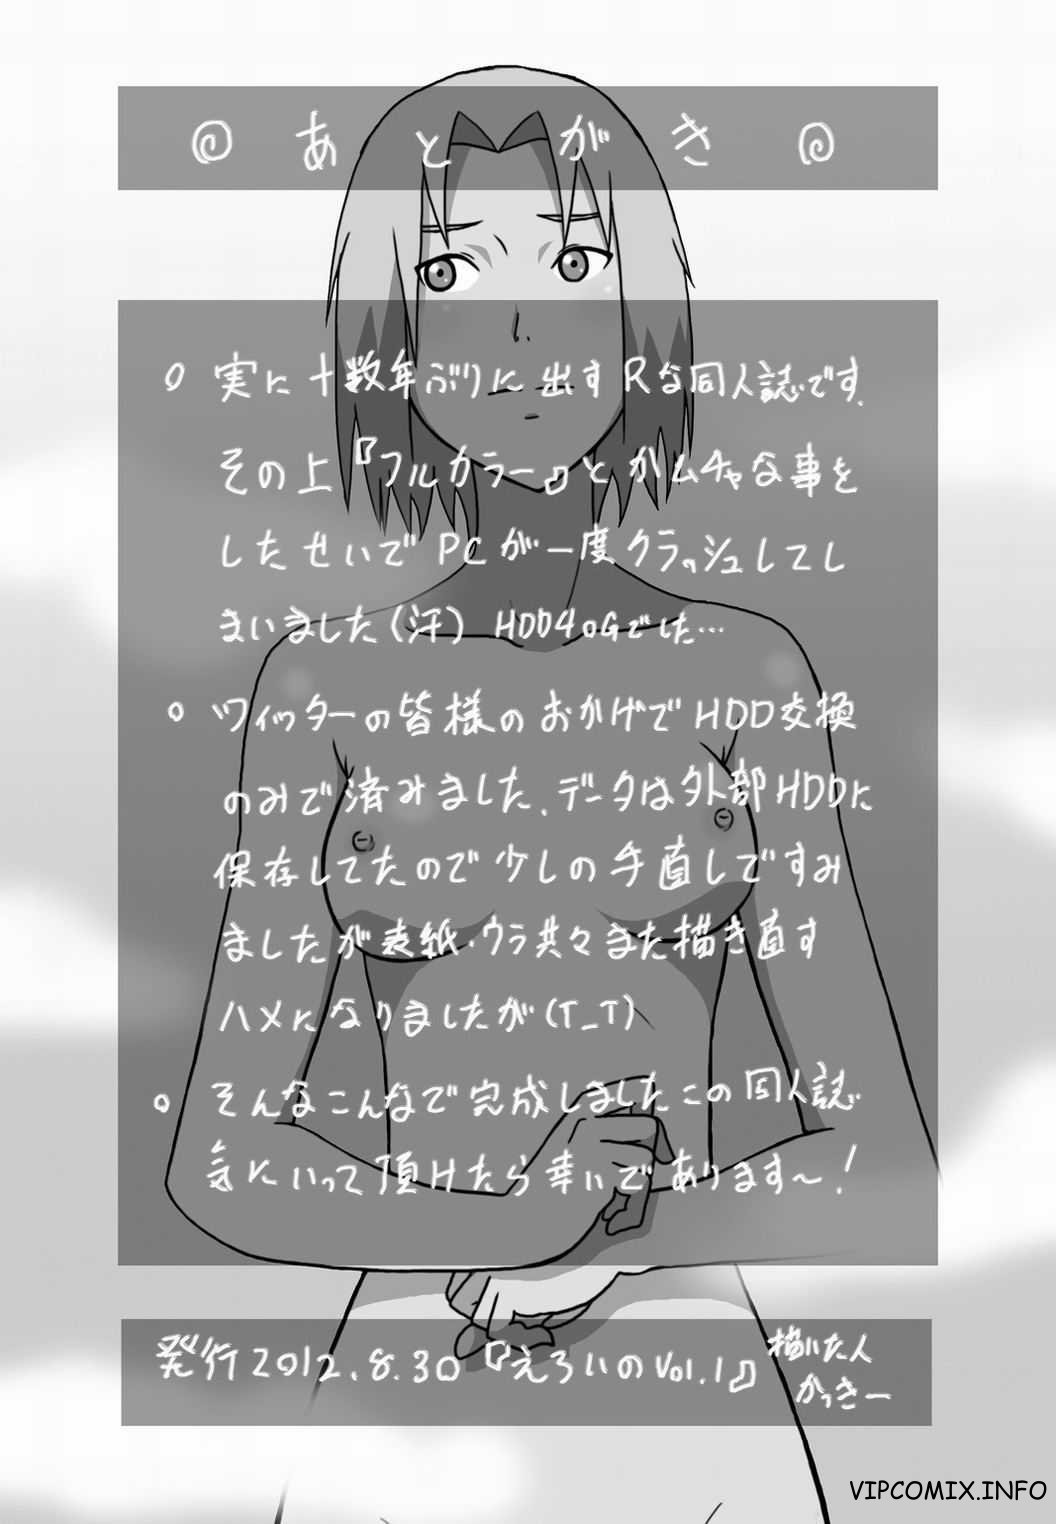 @ あとがき @
○ 実に十数年ぶりに出すRな同人誌です.
その上『フルカラー』とかムチャな事を
したせいでPCが一度クラッシュしてし
まいました(汗) HDD40Gでした…
○ ツィッターの皆様のおかげでHDD交換
のみで済みました.データは外部HDDに
保存してたので少しの手直しですみ
ましたが表紙・ウラ共々また描き直す
ハメになりましたが(T_T)
○ そんなこんなで完成しましたこの同人誌
気にいって頂けたら幸いであります〜!
発行2012.8.30『えろいのVol.1』描いた人
かっきー
VIPCOMIX.INFO